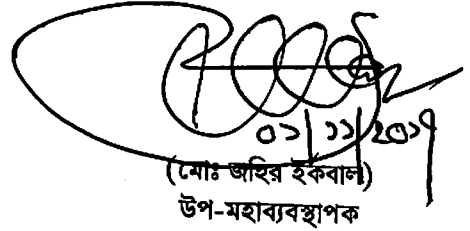 ০১/১১/২০১৭
(মোঃ জহির ইকবাল)
উপ-মহাব্যবস্থাপক